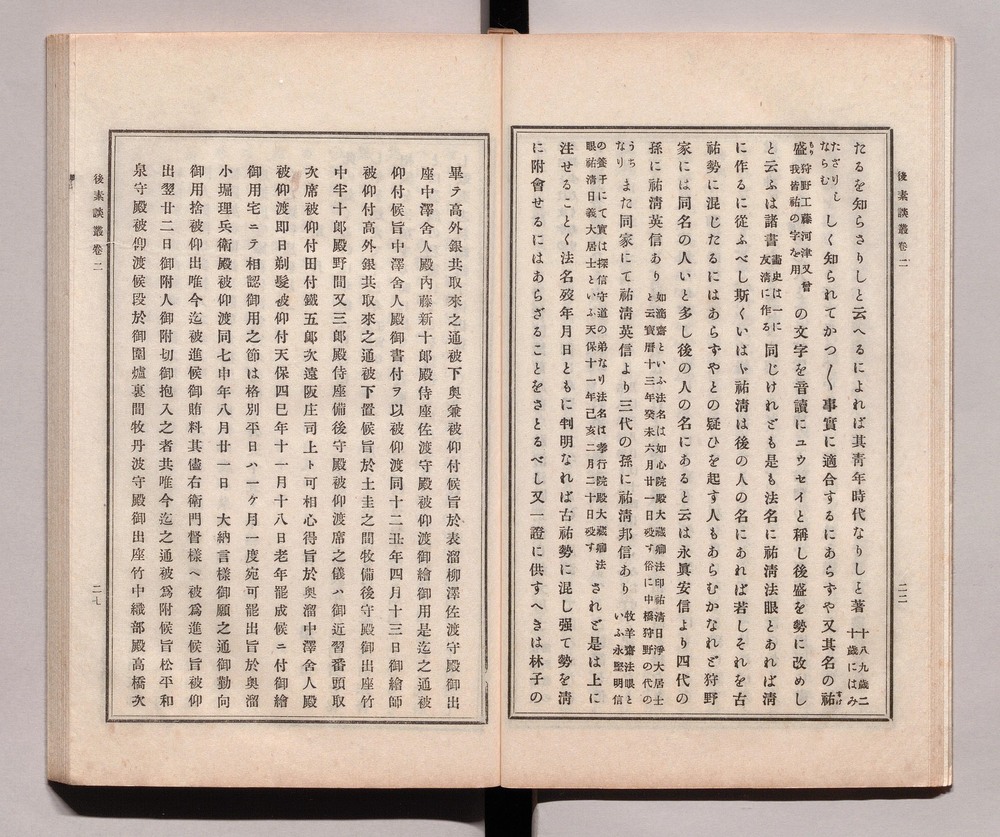 後素談叢卷二
二二
たるを知らさりしと云へるによれば其靑年時代なりしと著十八九歲二十歲にはみ
たざりしならむしく知られてかつ〲事實に適合するにあらずや又其名の祐すけ
盛もり狩野工藤河津又曾我皆祐の字を用の文字を音讀にユウセイと稱し後盛を勢に改めし
と云ふは諸書畵史は一に友淸に作る同じけれども是も法名に祐淸法眼とあれば淸
に作るに從ふべし斯くいはゞ祐淸は後の人の名にあれば若しそれを古
祐勢に混じたるにはあらずやとの疑ひを起す人もあらむかなれど狩野
家には同名の人いと多し後の人の名にあると云は永眞安信より四代の
孫に祐淸英信あり如滴齋といふ法名は如心院殿大藏卿法印祐淸日淨大居士と云寶曆十三年癸未六月廿一日歿す俗に中橋狩野の代の
うちなりまた同家にて祐淸英信より三代の孫に祐淸邦信あり牧羊齋法眼といふ永堅明信
の養子にて實は探信守道の弟なり法名は孝行院殿大藏卿法眼祐淸日義大居士といふ天保十一年己亥二月二十日歿すされど是は上に
注せることく法名歿年月日ともに判明なれば古祐勢に混し强て勢を淸
に附會せるにはあらざることをさとるべし又一證に供すへきは林子の
畢テ高外銀共取來之通被下奧兼被仰付候旨於表溜柳澤佐渡守殿御出
座中澤舍人殿內藤新十郞殿侍座佐渡守殿被仰渡御繪御用是迄之通被
仰付候旨中澤舍人殿御書付ヲ以被仰渡同十二丑年四月十三日御繪師
被仰付高外銀共取來之通被下置候旨於土圭之間牧備後守殿御出座竹
中半十郞殿野間又三郞殿侍座備後守殿被仰渡席之儀ハ御近習番頭取
次席被仰付田付鐵五郞次遠阪庄司上ト可相心得旨於奧溜中澤舍人殿
被仰渡即日剃髮被仰付天保四巳年十一月十八日老年罷成候ニ付御繪
御用宅ニテ相認御用之節は格別平日ハ一ケ月一度宛可罷出旨於奧溜
小堀理兵衞殿被仰渡同七申年八月廿一日　大納言樣御願之通御勤向
御用捨被仰出唯今迄被進候御賄料其儘右衞門督樣ヘ被爲進候旨被仰
出翌廿二日御附人御附切御抱入之者共唯今迄之通被爲附候旨松平和
泉守殿被仰渡候段於御圍爐裏間牧丹波守殿御出座竹中織部殿高橋次
後素談叢卷二
二七